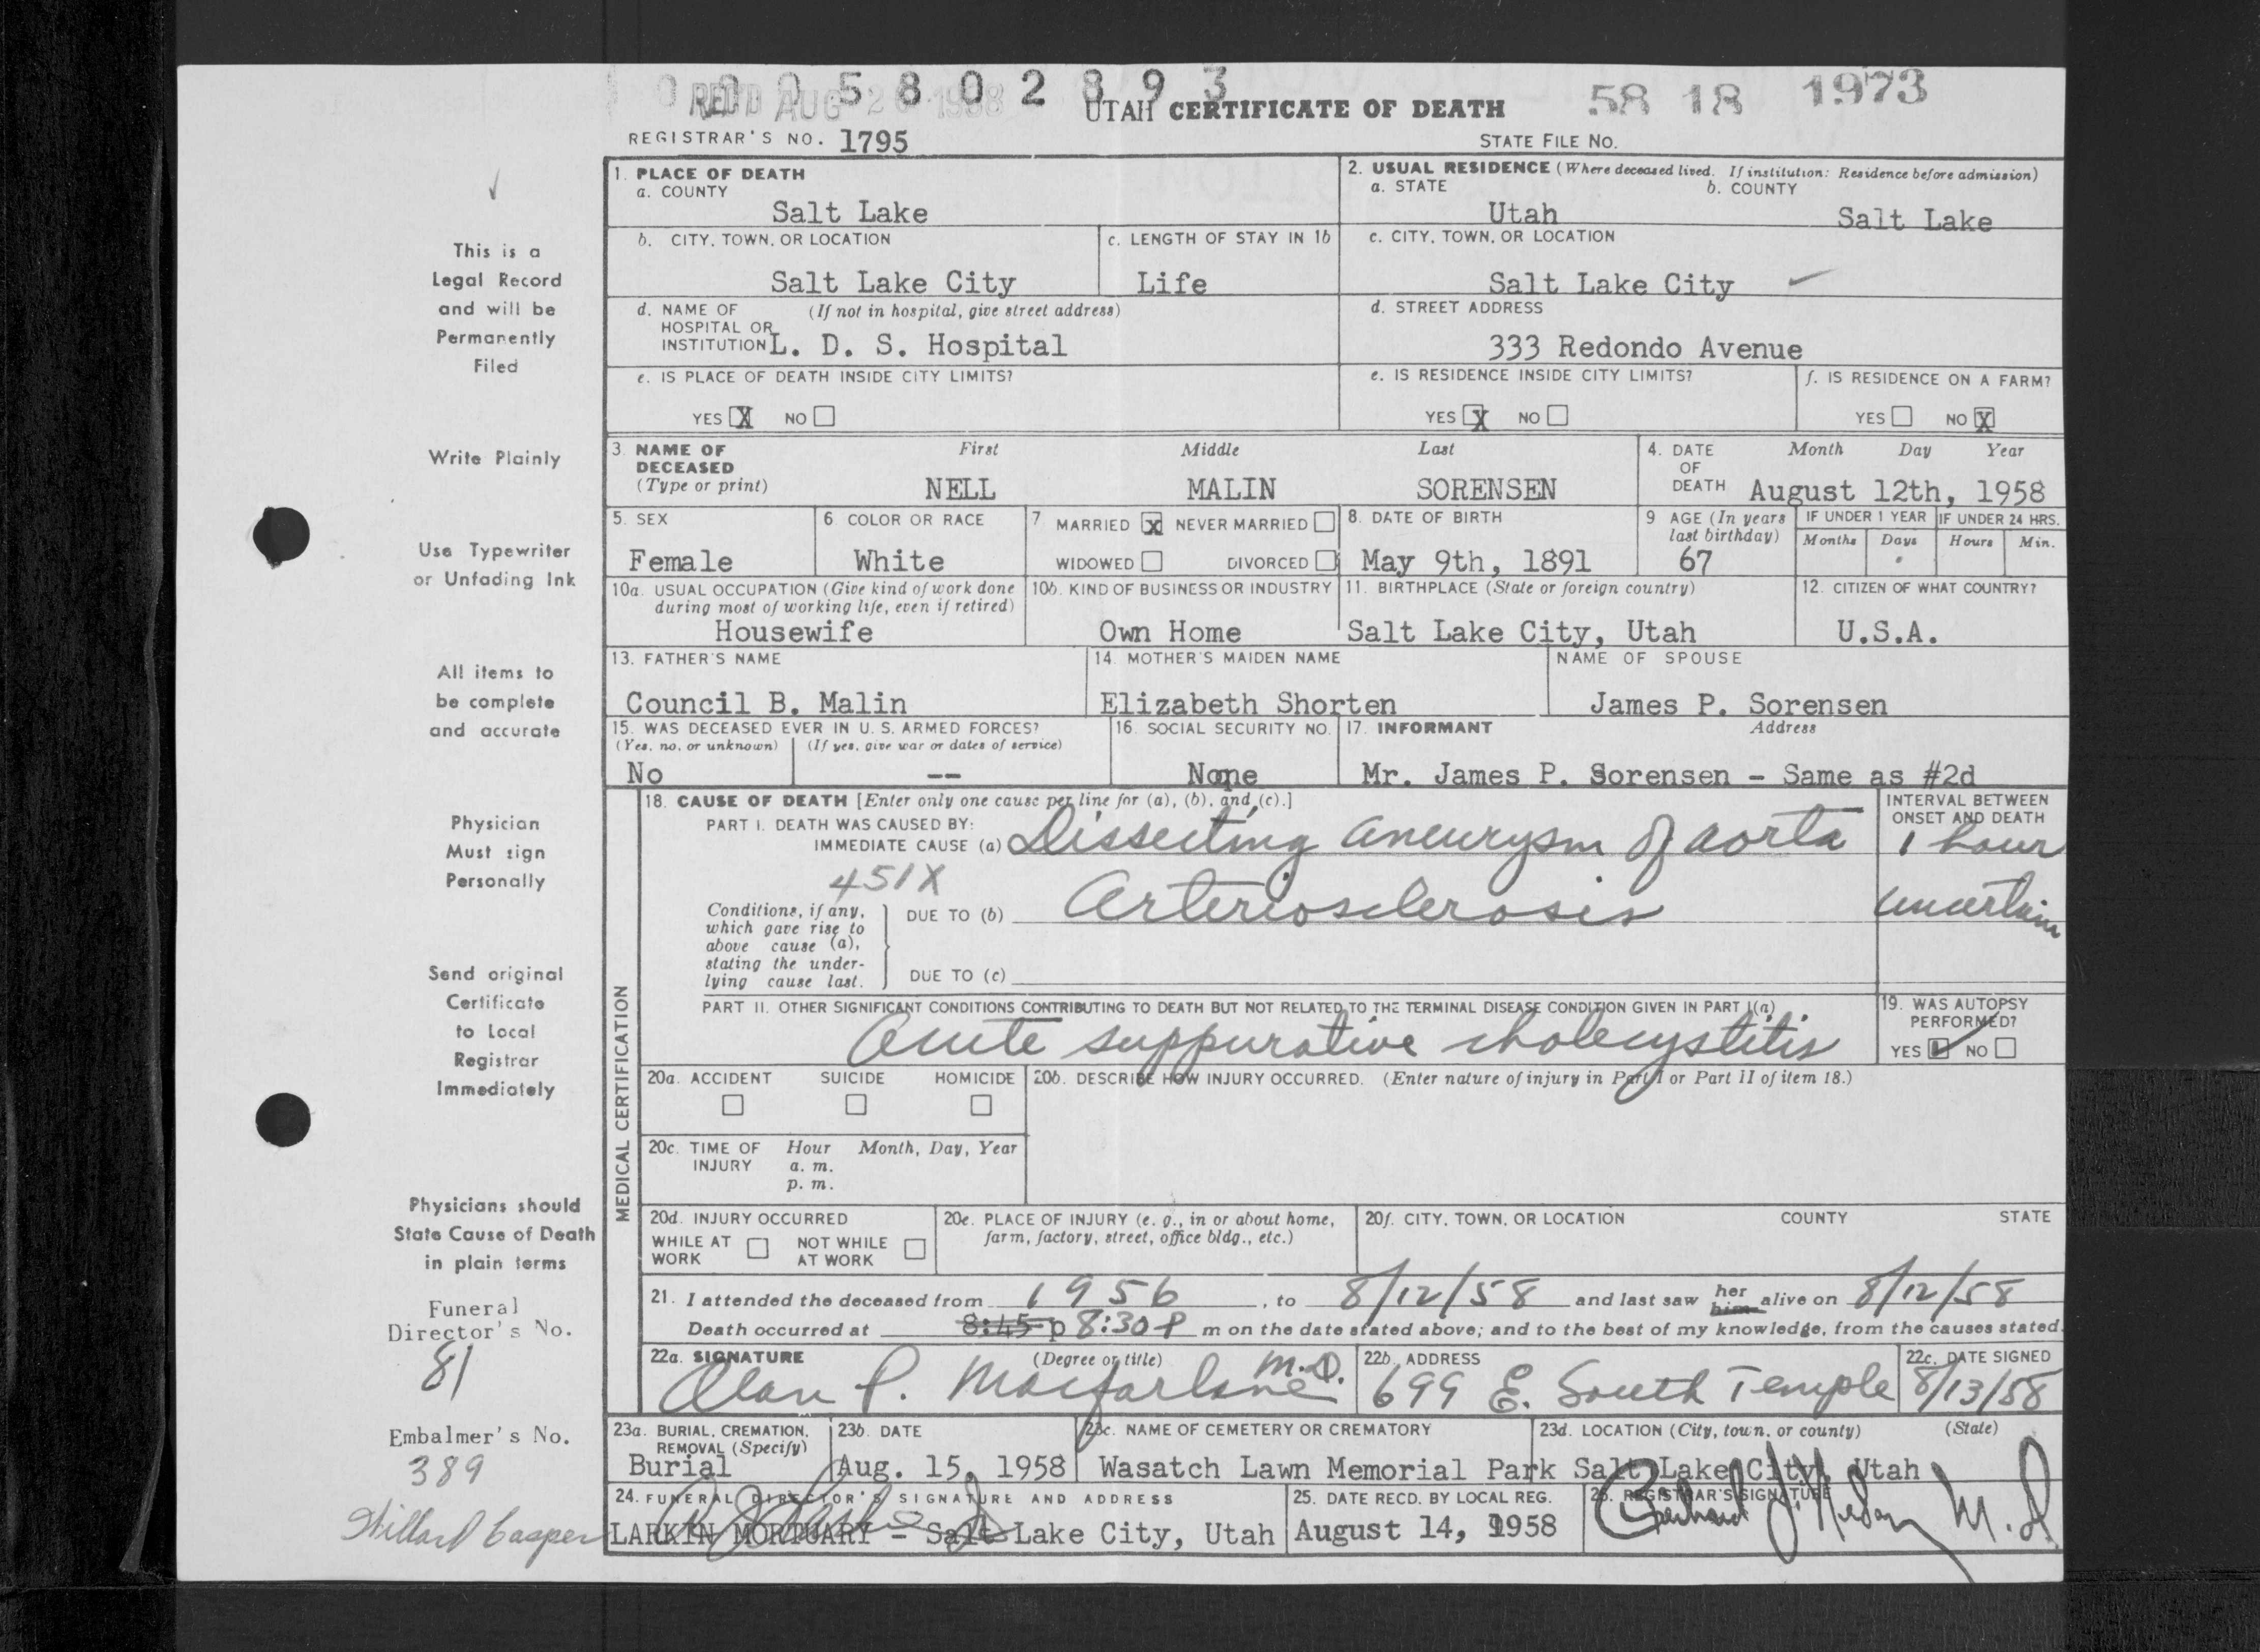 0005802893
REC'D AUG 26 1958
UTAH CERTIFICATE OF DEATH
58 18 1973
REGISTRAR'S NO. 1795
STATE FILE NO.
This is a
Legal Record
and will be
Permanently
Filed
Write Plainly
Use Typewriter
or Unfading Ink
All items to
be complete
and accurate
Physician
Must sign
Personally
Send original
Certificate
to Local
Registrar
Immediately
Physicians should
State Cause of Death
in plain terms
Funeral
Director's No.
81
Embalmer's No.
389
Willard Casper
1. PLACE OF DEATH
a. COUNTY
Salt Lake
2. USUAL RESIDENCE (Where deceased lived. If institution: Residence before admission)
a. STATE b. COUNTY
Utah Salt Lake
b. CITY, TOWN, OR LOCATION
Salt Lake City
c. LENGTH OF STAY IN 1b
Life
c. CITY, TOWN, OR LOCATION
Salt Lake City ✓
d. NAME OF (If not in hospital, give street address)
HOSPITAL OR
INSTITUTION L. D. S. Hospital
d. STREET ADDRESS
333 Redondo Avenue
e. IS PLACE OF DEATH INSIDE CITY LIMITS?
YES X NO
e. IS RESIDENCE INSIDE CITY LIMITS?
YES X NO
f. IS RESIDENCE ON A FARM?
YES NO X
3. NAME OF DECEASED (Type or print)
First Middle Last
NELL MALIN SORENSEN
4. DATE OF DEATH
Month Day Year
August 12th, 1958
5. SEX
Female
6. COLOR OR RACE
White
7 MARRIED X NEVER MARRIED
WIDOWED DIVORCED
8. DATE OF BIRTH
May 9th, 1891
9 AGE (In years
last birthday)
67
IF UNDER 1 YEAR
Months Days
IF UNDER 24 HRS.
Hours Min.
10a. USUAL OCCUPATION (Give kind of work done
during most of working life, even if retired)
Housewife
10b. KIND OF BUSINESS OR INDUSTRY
Own Home
11. BIRTHPLACE (State or foreign country)
Salt Lake City, Utah
12. CITIZEN OF WHAT COUNTRY?
U.S.A.
13. FATHER'S NAME
Council B. Malin
14. MOTHER'S MAIDEN NAME
Elizabeth Shorten
NAME OF SPOUSE
James P. Sorensen
15. WAS DECEASED EVER IN U. S. ARMED FORCES?
(Yes, no, or unknown) (If yes, give war or dates of service)
No --
16. SOCIAL SECURITY NO.
None
17. INFORMANT Address
Mr. James P. Sorensen - Same as #2d
MEDICAL CERTIFICATION
18. CAUSE OF DEATH [Enter only one cause per line for (a), (b), and (c).]
PART I. DEATH WAS CAUSED BY:
IMMEDIATE CAUSE (a) Dissecting aneurysm of aorta
INTERVAL BETWEEN
ONSET AND DEATH
1 hour
451X
Conditions, if any,
which gave rise to
above cause (a),
stating the under-
lying cause last.
DUE TO (b) Arteriosclerosis
uncertain
DUE TO (c)
PART II. OTHER SIGNIFICANT CONDITIONS CONTRIBUTING TO DEATH BUT NOT RELATED TO THE TERMINAL DISEASE CONDITION GIVEN IN PART I(a)
Acute suppurative cholecystitis
19. WAS AUTOPSY
PERFORMED?
YES ✓ NO
20a. ACCIDENT SUICIDE HOMICIDE
20b. DESCRIBE HOW INJURY OCCURRED. (Enter nature of injury in Part I or Part II of item 18.)
20c. TIME OF INJURY Hour Month, Day, Year
a. m.
p. m.
20d. INJURY OCCURRED
WHILE AT WORK NOT WHILE AT WORK
20e. PLACE OF INJURY (e. g., in or about home,
farm, factory, street, office bldg., etc.)
20f. CITY, TOWN, OR LOCATION COUNTY STATE
21. I attended the deceased from 1956, to 8/12/58 and last saw her him alive on 8/12/58
Death occurred at 8:45 p 8:30 P m on the date stated above; and to the best of my knowledge, from the causes stated.
22a. SIGNATURE (Degree or title)
Alan P. Macfarlane M.D.
22b. ADDRESS
699 E. South Temple
22c. DATE SIGNED
8/13/58
23a. BURIAL, CREMATION,
REMOVAL (Specify)
Burial
23b. DATE
Aug. 15, 1958
23c. NAME OF CEMETERY OR CREMATORY
Wasatch Lawn Memorial Park
23d. LOCATION (City, town, or county) (State)
Salt Lake City, Utah
24. FUNERAL DIRECTOR'S SIGNATURE AND ADDRESS
LARKIN MORTUARY - Salt Lake City, Utah
25. DATE RECD. BY LOCAL REG.
August 14, 1958
26. REGISTRAR'S SIGNATURE
M.D.